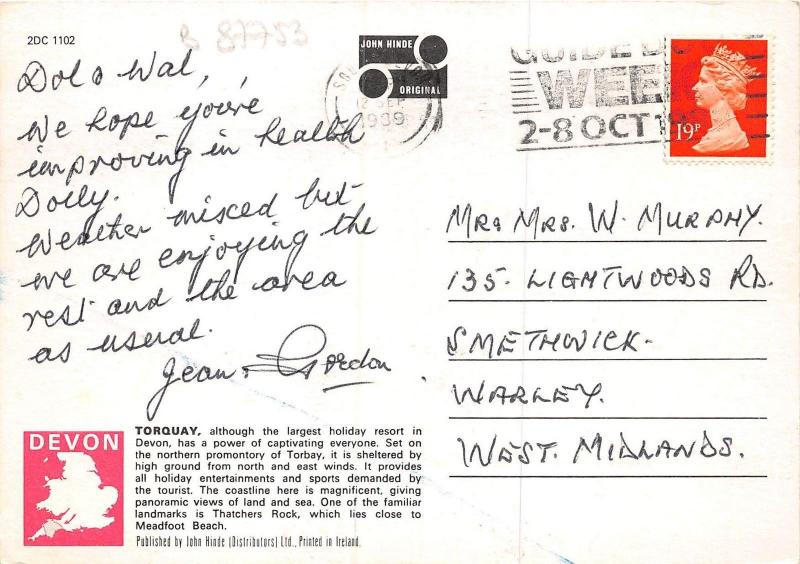 2DC 1102
B 87753
JOHN HINDE
ORIGINAL
12 SEP
1989
GUIDE
WEE
2-8 OCT 1
19P
Dol & Wal,
We hope you're
improving in health
Dolly.
Weather mixed but
we are enjoying the
rest and the area
as useral.
Jean & Gordon
Mr & Mrs. W. Murphy.
135. Lightwoods Rd.
Smethwick.
Warley.
West. Midlands.
DEVON
TORQUAY, although the largest holiday resort in
Devon, has a power of captivating everyone. Set on
the northern promontory of Torbay, it is sheltered by
high ground from north and east winds. It provides
all holiday entertainments and sports demanded by
the tourist. The coastline here is magnificent, giving
panoramic views of land and sea. One of the familiar
landmarks is Thatchers Rock, which lies close to
Meadfoot Beach.
Published by John Hinde (Distributors) Ltd., Printed in Ireland.